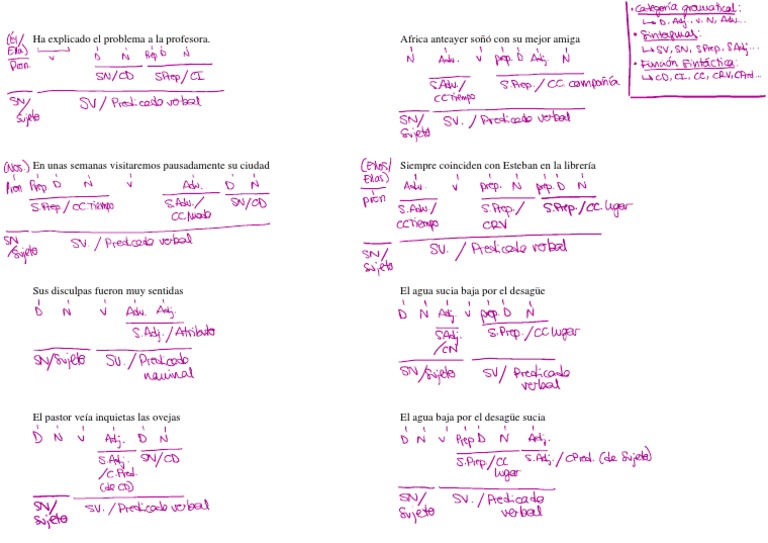 Categoría gramatical:
↳ D, Adj. V. N, Adv...
Sintagmal:
↳ SV, SN, S.Prep, S.Adj...
Función Sintáctica:
↳ CD, CI, CC, CRV, CPred...
(Él/
Ella)
Ha explicado el problema a la profesora.
Pron V D N Prep D N
SN/CD SPrep/CI
SN/
Sujeto
SV/Predicado verbal
Africa anteayer soñó con su mejor amiga
N Adv. V prep. D Adj. N
S.Adv/
CCTiempo
S.Prep/CC. compañía
SN/
Sujeto
SV./Predicado verbal
(Nos.)
En unas semanas visitaremos pausadamente su ciudad
Pron Prep. D N V Adv. D N
S.Prep/CCTiempo
S.Adv./
CC.Modo
SN/CD
SN
/Sujeto
SV./Predicado verbal
(Ellos/
Ellas)
Siempre coinciden con Esteban en la librería
pron Adv. V prep. N prep. D N
S.Adv/
CCTiempo
S.Prep/
CRV
S.Prep/CC. lugar
SN/
Sujeto
SV/Predicado verbal
Sus disculpas fueron muy sentidas
D N V Adv. Adj.
S.Adj./Atributo
SN/Sujeto
SV./Predicado
nominal
El agua sucia baja por el desagüe
D N Adj V prep. D N
S.Adj.
/CN
S.Prep./CC lugar
SN/Sujeto
SV/Predicado
verbal
El pastor veía inquietas las ovejas
D N V Adj. D N
S.Adj.
/C.Pred.
(de CD)
SN/CD
SN/
Sujeto
SV./Predicado verbal
El agua baja por el desagüe sucia
D N V Prep D N Adj.
S.Prep/CC
lugar
S.Adj./CPred. (de Sujeto)
SN/
Sujeto
SV./Predicado
verbal